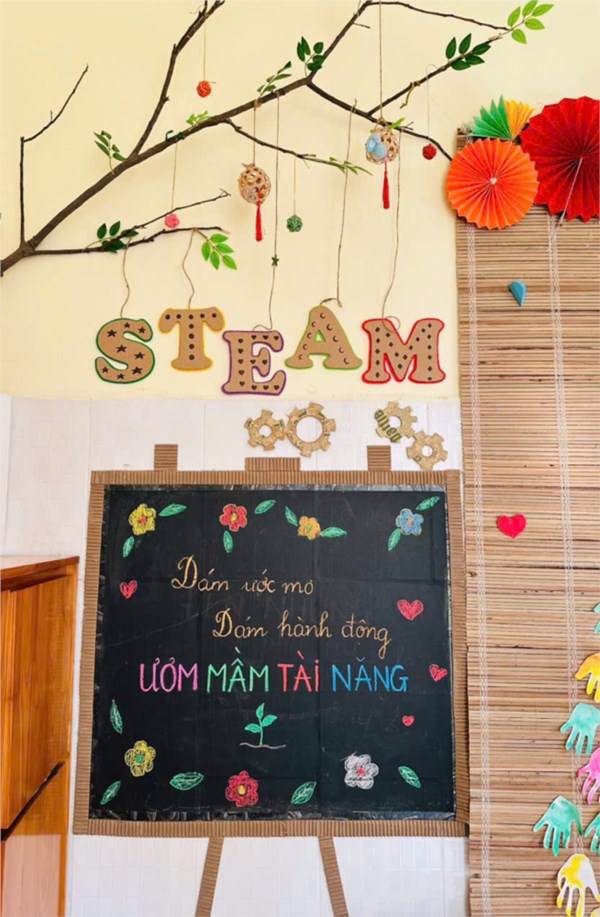 STEAM
Dám ước mơ
Dám hành động
ƯƠM MẦM TÀI NĂNG